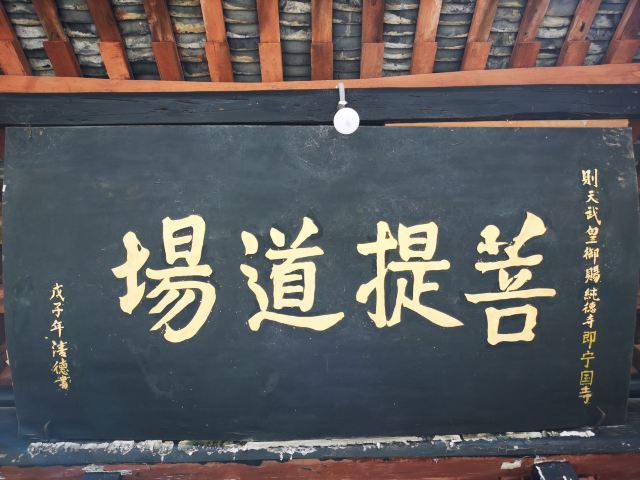 則天武皇御賜純德寺即宁国寺
菩提道場
戊子年清德書